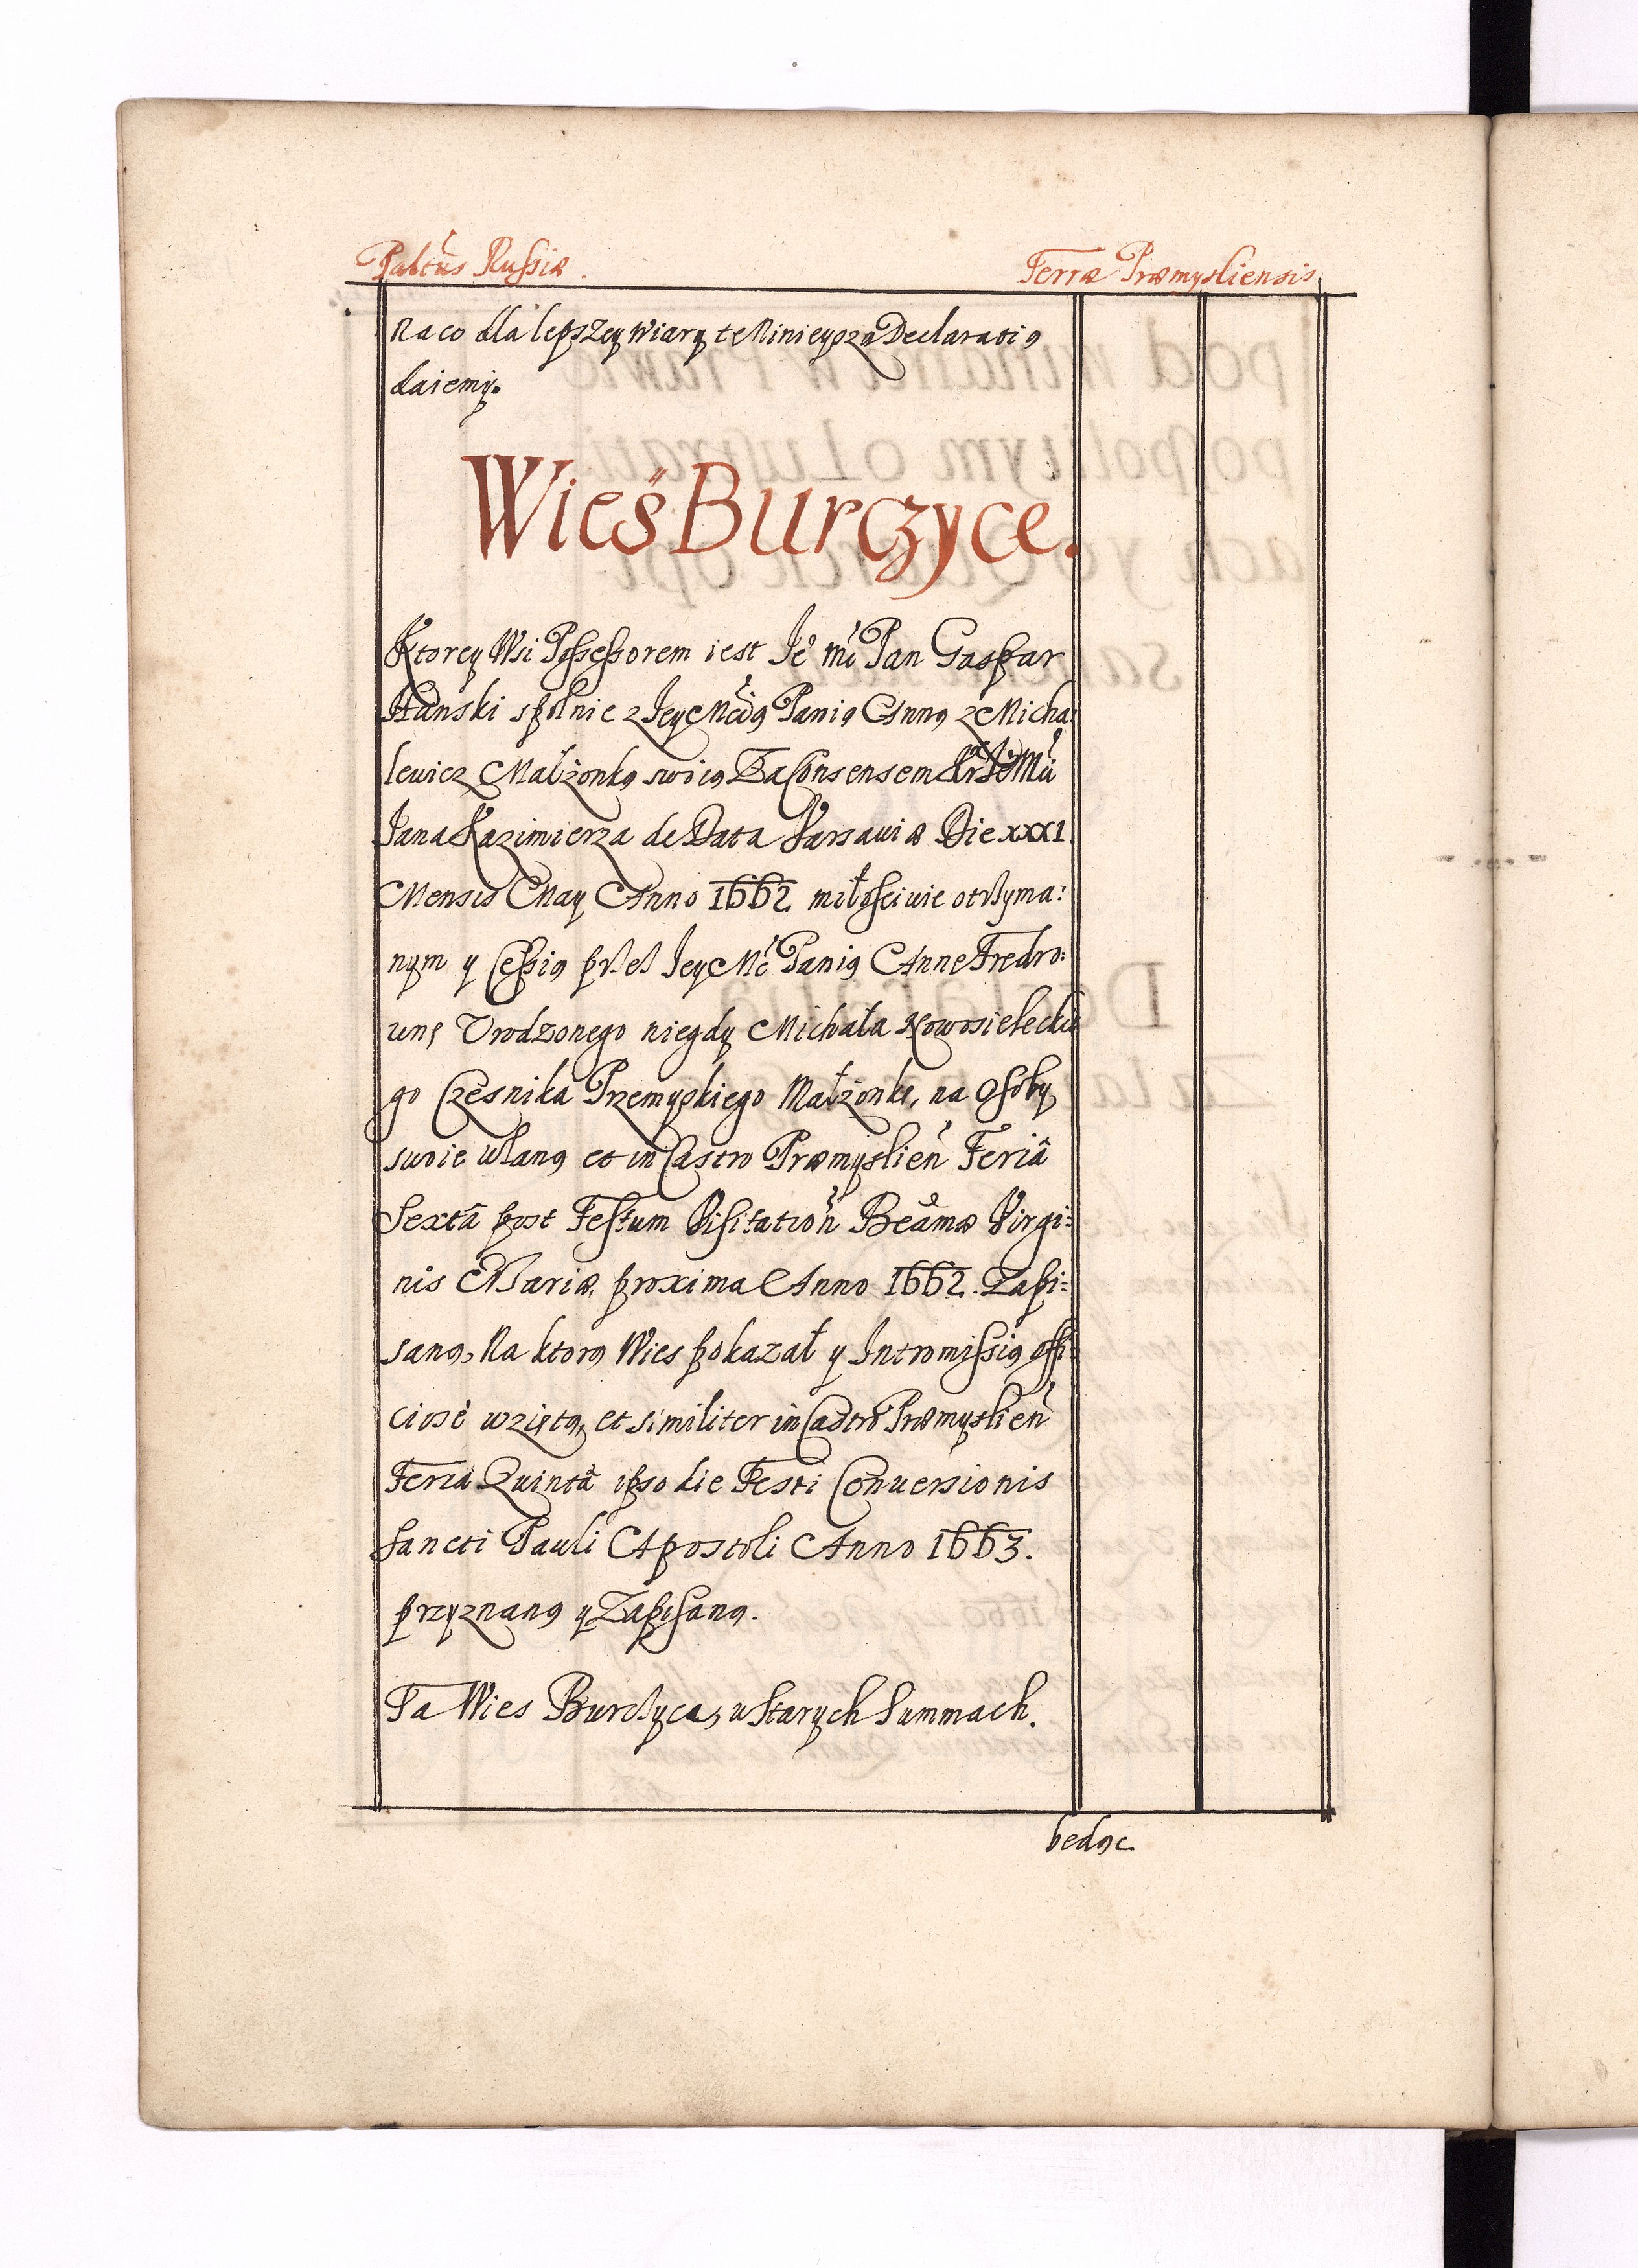 Palt̃us Russiæ.
Terræ Præmysliensis.
Na co dla lepszey wiary tę Ninieyszą Declaratią
daiemy.
Wieś Burczyce.
Ktorey Wsi Possessorem iest Je° mć Pan Gaspar
spolnie z Jey Mcią Panią Anną z Micha:
lewicz Małżonką swoią Za Consensem
Jana Kazimierza de Data Varsaviæ Die xxx1.
Mensis May Anno 1662 miłościwie otrzyma:
nym y Cessią przez Jey Mć Panią Annę Fredro:
wnę Vrodzonego niegdy Michała Nowosielecki
go Cześnika Przemyskiego Małżonkę, na osoby
swoie wlaną et in Castro Præmyslień Feriâ
Sextâ post Festum Visitatioñ Beatmæ Virgi:
nis Mariæ, proxima Anno 1662. Zapi:
saną, Na ktorą Wies pokazał y Intromissią offi:
ciosè wziętą, et similiter in Castrò Præmyslień
Feriâ Quintâ ipso die Festi Conversionis
Sancti Pauli Apostoli Anno 1663.
przyznaną y Zapisaną.
Ta Wies Burczyca, w starych Summach.
bedąc